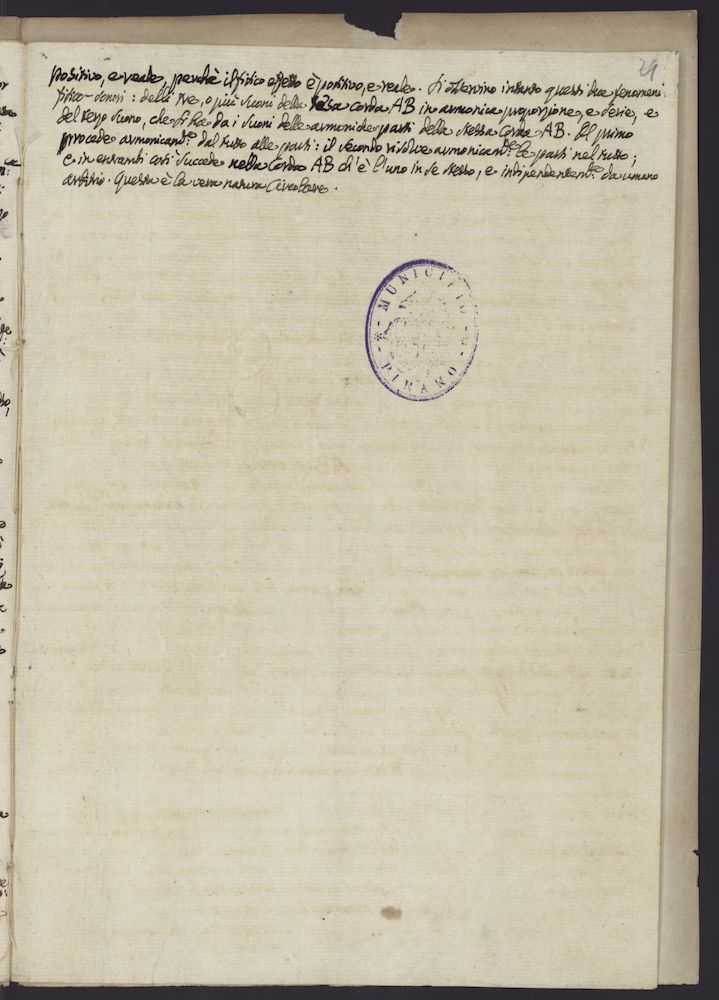 29
positivo, e reale, perchè il fisico effetto è positivo, e reale. Si osservino intanto questi due fenomeni
fisico-sonori: delli tre, o più suoni della tesa corda AB in armonica proporzione, e serie, e
del terzo suono, che si ha da i suoni delle armoniche parti della stessa Corda AB. Il primo
procede armonicam.te dal tutto alle parti: il secondo risolve armonicam.te le parti nel tutto;
e in entrambi così succede nella Corda AB ch'è l'uno in se stesso, e independentem.te da umano
arbitrio. Questa è la vera natura Circolare.
MUNICIPIO
PIRANO